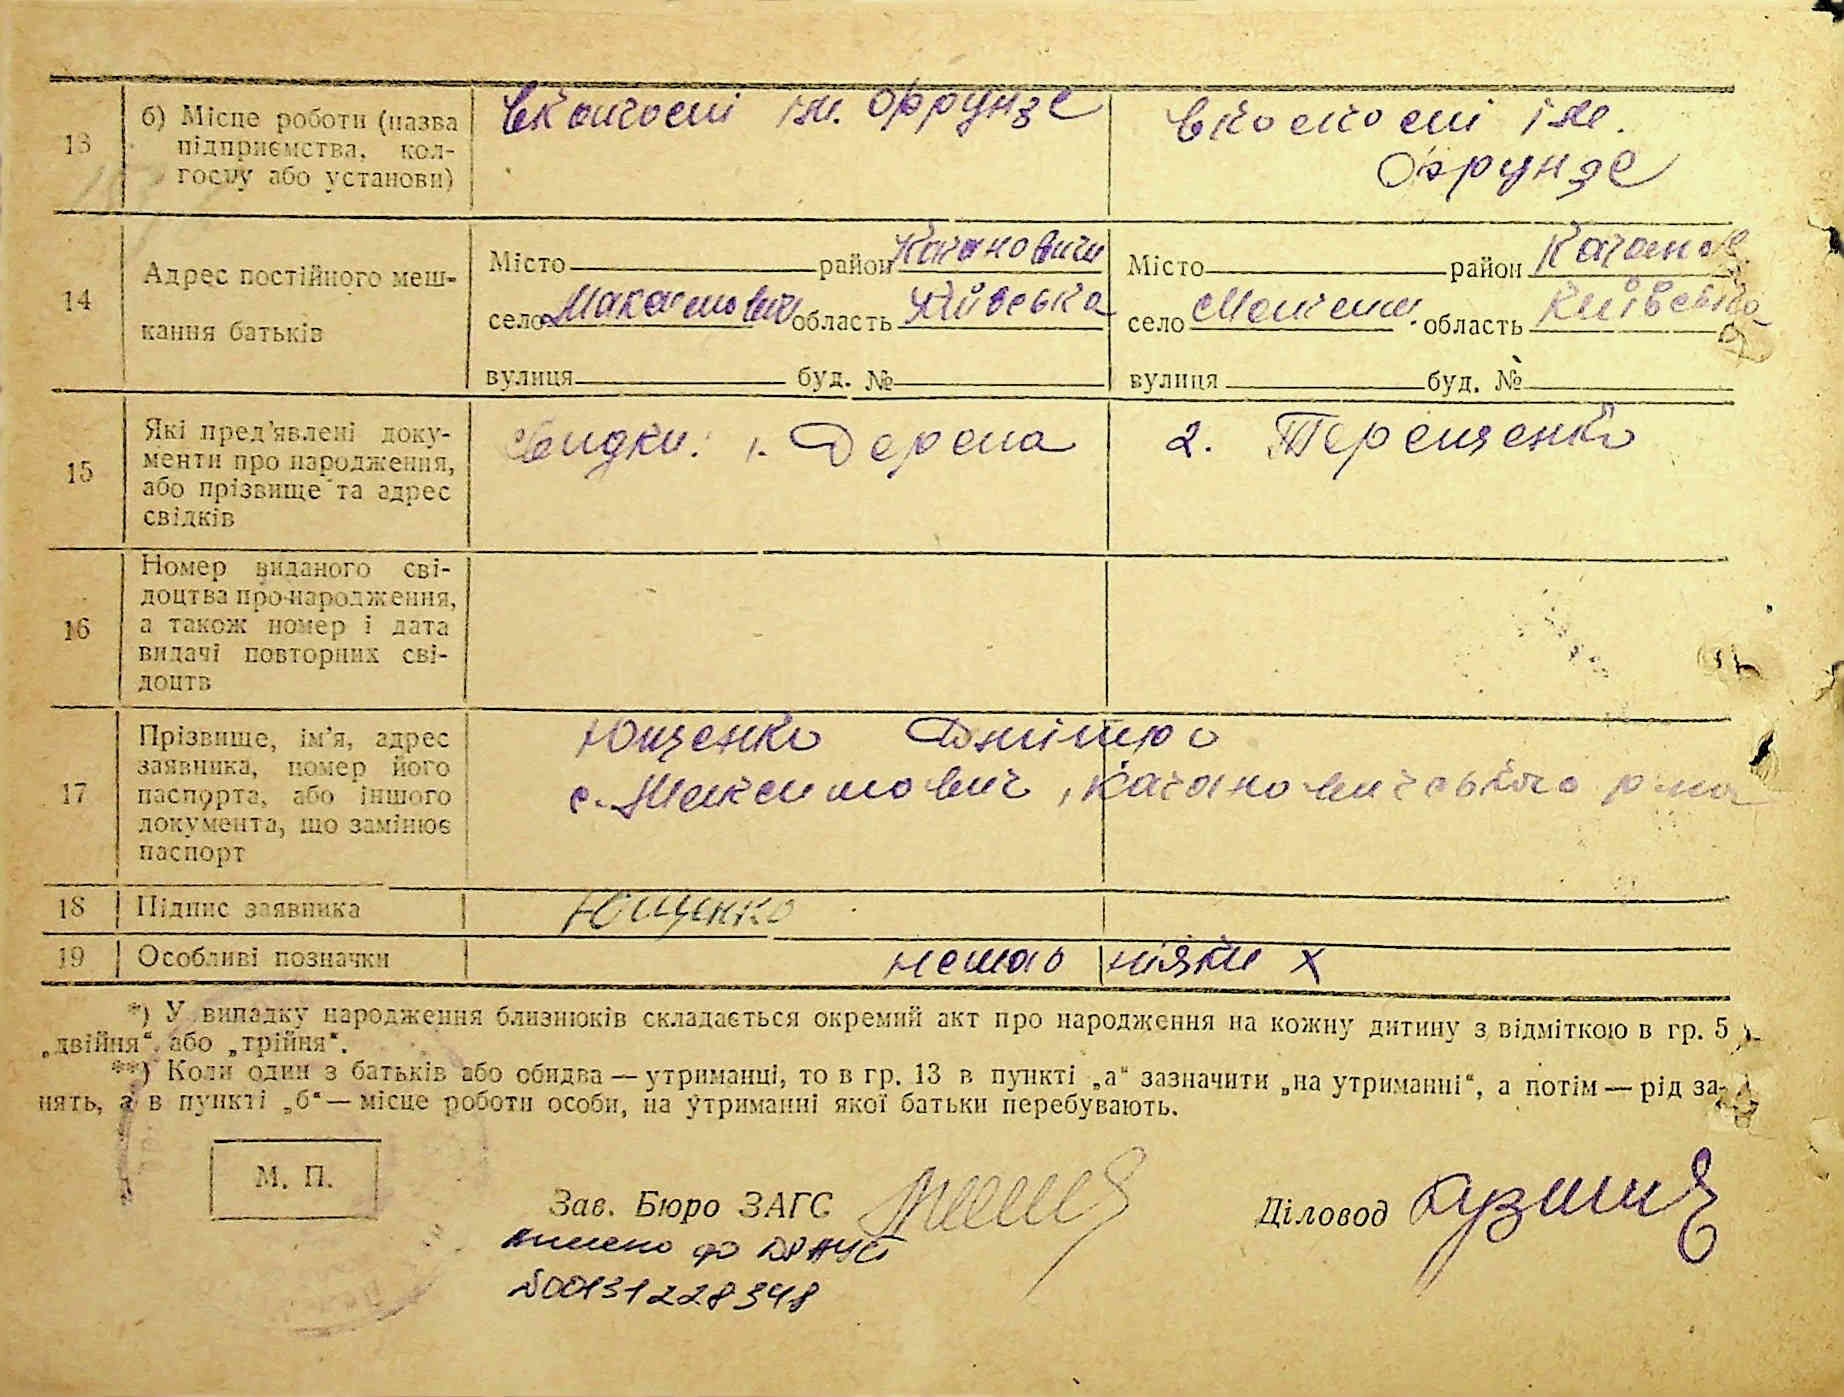 13
б) Місце роботи (назва
підприємства, кол-
госпу або установи)
ім. Фрунзе
ім.
Фрунзе
14
Адрес постійного меш-
кання батьків
Місто район Качановичи
село область Київська
вулиця буд. №
Місто район
село область Київська
вулиця буд. №
15
Які пред'явлені доку-
менти про народження,
або прізвище та адрес
свідків
Свидки: 1. Дерепа
2. Терещенко
16
Номер виданого сві-
доцтва про народження,
а також номер і дата
видачі повторних сві-
доцтв
17
Прізвище, ім'я, адрес
заявника, номер його
паспорта, або іншого
документа, що замінює
паспорт
Ющенко Дмітро
с. Максимович, Качановичського р-на
18
Підпис заявника
Ющенко
19
Особливі позначки
немає ніяки х
*) У випадку народження близнюків складається окремий акт про народження на кожну дитину з відміткою в гр. 5
„двійня“ або „трійня“.
**) Коли один з батьків або обидва — утриманці, то в гр. 13 в пункті „а“ зазначити „на утриманні“, а потім — рід за-
нять, а в пункті „б“ — місце роботи особи, на утриманні якої батьки перебувають.
М. П.
Зав. Бюро ЗАГС
Діловод
внесено до ДРАЦС
№00131228348